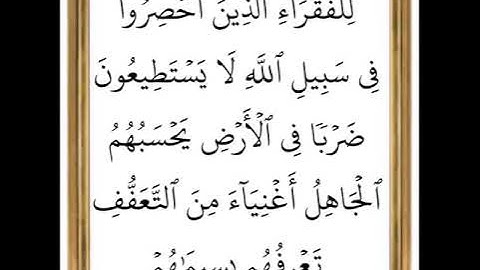 لِلْفُقَرَاءِ الَّذِينَ أُحْصِرُوا
فِي سَبِيلِ ٱللَّهِ لَا يَسْتَطِيعُونَ
ضَرْبًا فِي ٱلْأَرْضِ يَحْسَبُهُمُ
ٱلْجَاهِلُ أَغْنِيَآءَ مِنَ ٱلتَّعَفُّفِ
تَعْرِفُهُم بِسِيمَٰهُمْ